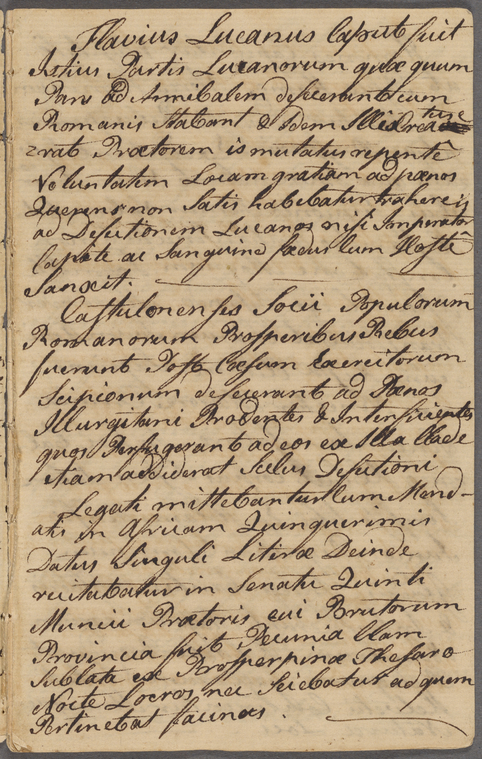 Flavius Lucanus Caput fuit
Istius Partis Lucanorum quæ quum
Pars Ad Annibalem desciverant cum
Romanis Stabant & Idem Illis Crea
erat Prætorem is mutatus repente
Voluntatem Locam gratiam ad pænos
Querens non Satis habebatur trahere is
ad Defectionem Lucanos nisi Imperator
Capite ac Sanguine fædus cum Hoste
Sanxit.
Castulonensis Socii Populorum
Romanorum Prosperibus Rebus
fuerunt Post Cæsum Exercitorum
Scipionum desciverant ad Pænos
Illurgitani Prodentes & Interficientes
quos Perfugerant ad eos ex Illa Clade
etiam addiderat Scelus Defectioni
Legati mittebantur cum Mand-
atis in Africam Quinquerimis
Datus Singuli Literæ Deinde
recitabatur in Senatu Quinti
Municii Prætoris cui Brutorum
Provincia fuit Pecunia Clam
Sublata ex Prosperpinæ Thesaro
Nocte Locros nec Sciebatur ad quem
Pertinebat facinas.